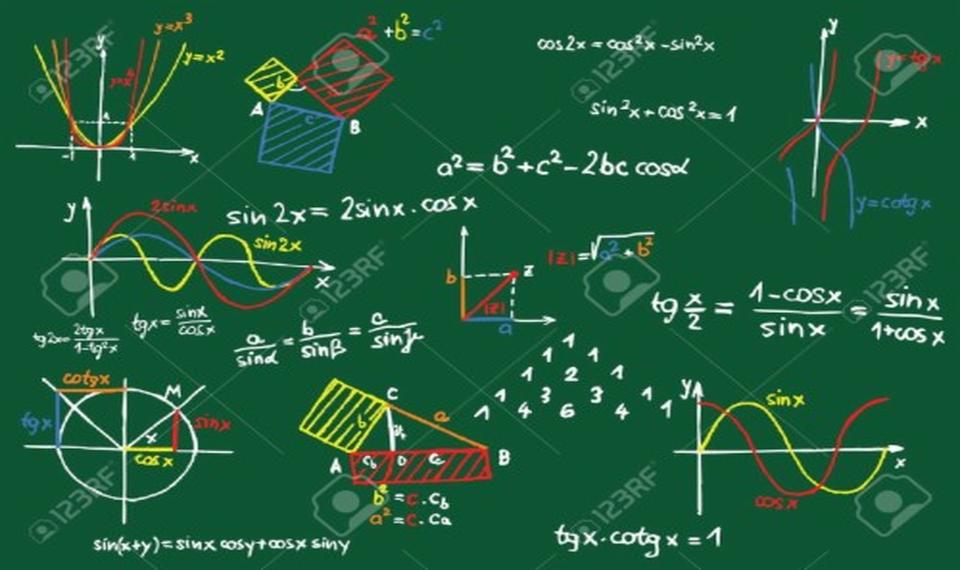 y=x³
y=x²
y=x⁴
y
1
-1
x
x
a²+b²=c²
b
a
c
A
B
cos2x=cos²x-sin²x
sin²x+cos²x=1
a²=b²+c²-2bc cosα
y
x
y=tgx
y=cotgx
y
2sinx
sin2x
x
sin2x=2sinx.cosx
b
z
|z|
a
|z|=√a²+b²
tg2x=2tgx/1-tg²x
tgx=sinx/cosx
a/sinα=b/sinβ=c/sinγ
tg x/2=1-cosx/sinx=sinx/1+cosx
1
1 1
1 2 1
1 3 3 1
1 4 6 4 1
cotgx
M
tgx
x
sinx
cosx
C
b
a
A
cb
D
ca
B
b²=c.cb
a²=c.ca
y
sinx
x
cosx
sin(x+y)=sinx cosy+cosx siny
tgx.cotgx=1
123RF